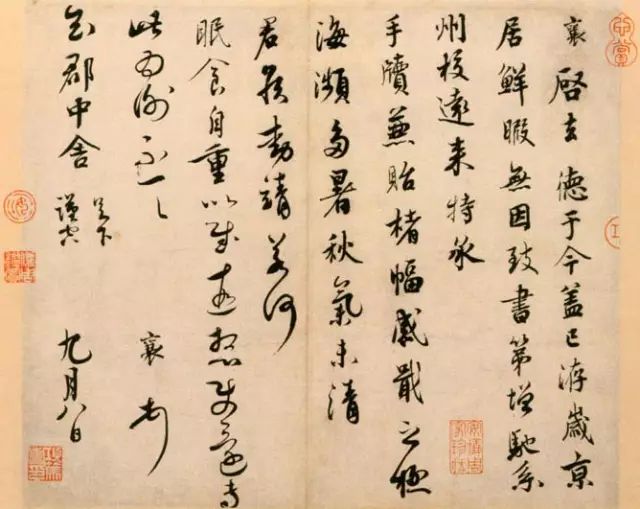 襄啓去德于今蓋已洊歲京
居鮮暇無因致書第增馳系
州校遠來特承
手牘兼貽楮幅感戢之極
海瀕多暑秋氣未清
君侯動靖若何
眠食自重以慰遠想使還專
此為謝不一一 襄頓首
知郡中舍足下
謹空 九月八日